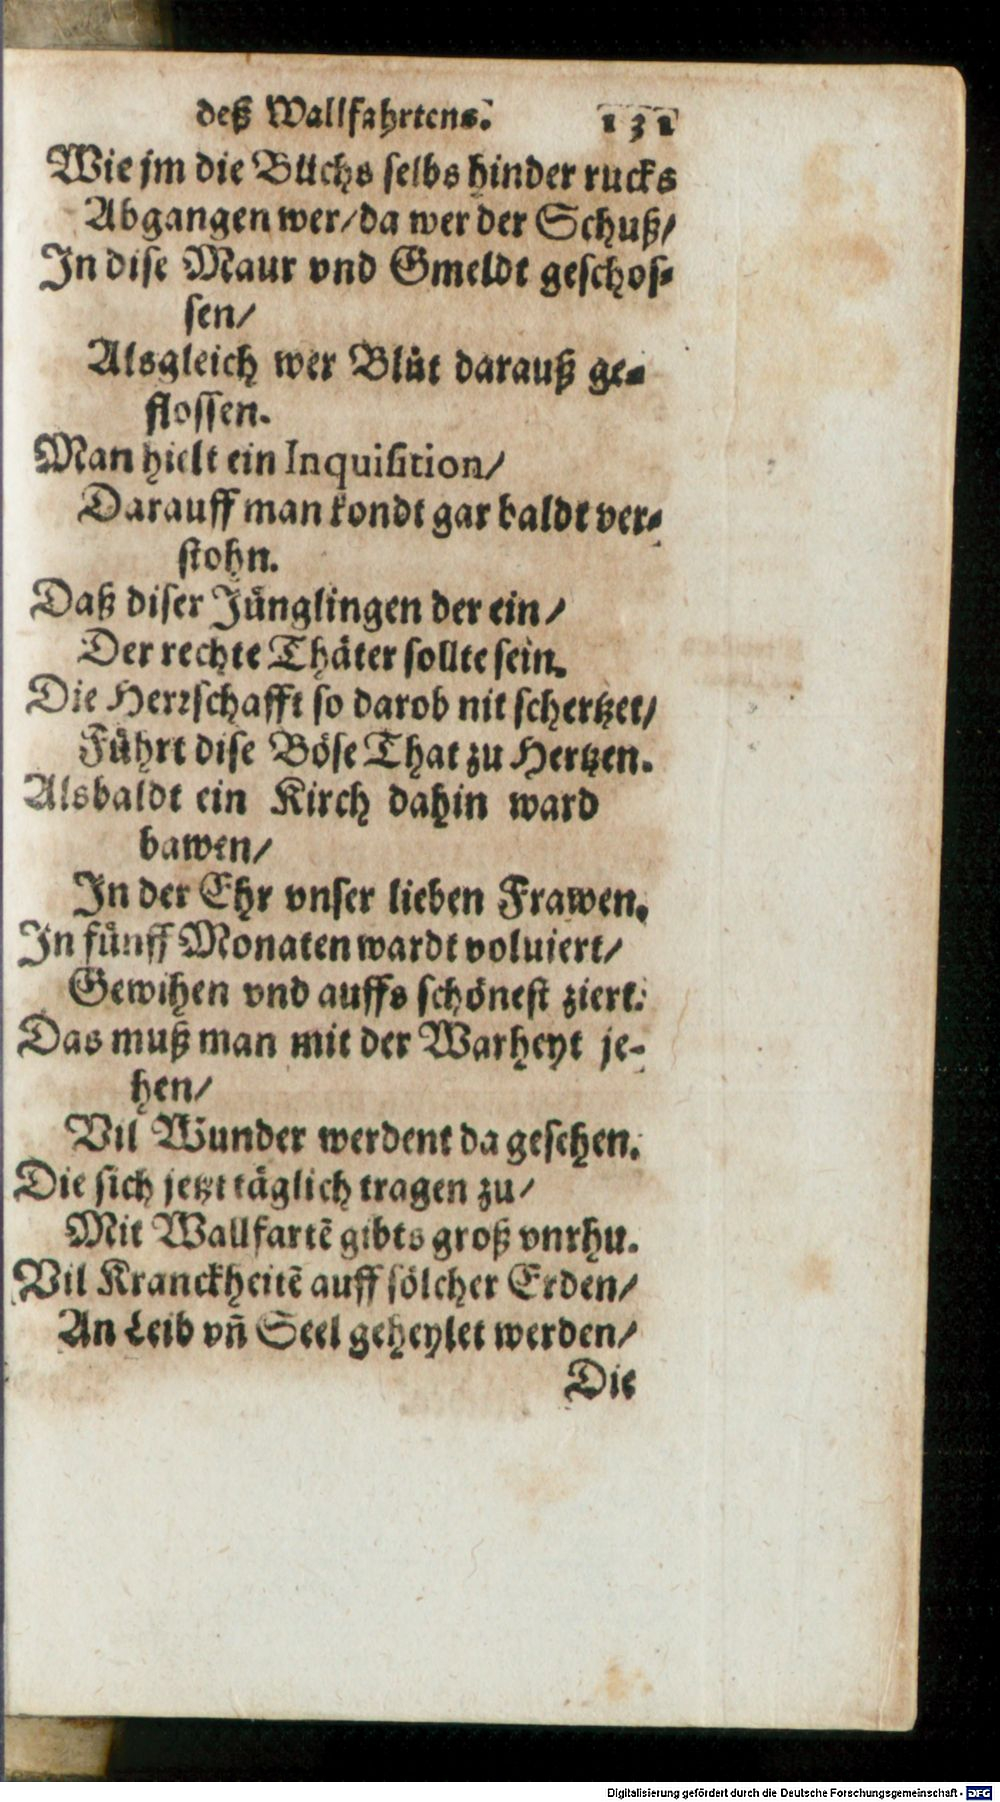 deß Wallfahrtens. 131
Wie jm die Büchs selbs hinder rucks
Abgangen wer/ da wer der Schuß/
In dise Maur vnd Gmeldt geschos-
sen/
Alsgleich wer Blůt darauß ge-
flossen.
Man hielt ein Inquisition/
Darauff man kondt gar baldt ver-
stohn.
Daß diser Jünglingen der ein/
Der rechte Thäter sollte sein.
Die Herrschafft so darob nit schertzet/
Führt dise Böse That zu Hertzen.
Alsbaldt ein Kirch dahin ward
bawen/
In der Ehr vnser lieben Frawen.
In fünff Monaten wardt voluiert/
Gewihen vnd auffs schönest ziert.
Das muß man mit der Warheyt je-
hen/
Vil Wunder werdent da gesehen.
Die sich jetzt täglich tragen zu/
Mit Wallfartẽ gibts groß vnrhu.
Vil Kranckheitẽ auff sölcher Erden/
An Leib vñ Seel geheylet werden/
Die
Digitalisierung gefördert durch die Deutsche Forschungsgemeinschaft - DFG